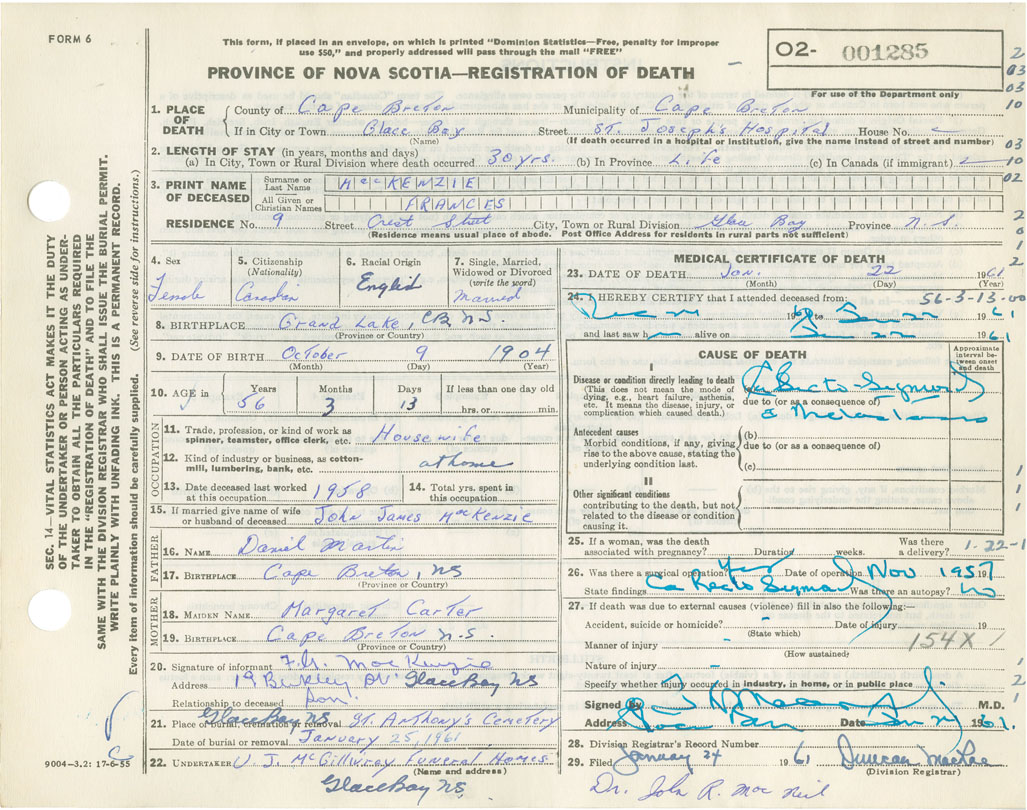 FORM 6
This form, if placed in an envelope, on which is printed "Dominion Statistics—Free, penalty for improper
use $50," and properly addressed will pass through the mail "FREE"
PROVINCE OF NOVA SCOTIA—REGISTRATION OF DEATH
02- 001285
For use of the Department only
1. PLACE OF DEATH County of Cape Breton Municipality of Cape Breton
If in City or Town Glace Bay Street St. Joseph's Hospital House No.
(Name) (If death occurred in a hospital or Institution, give the name instead of street and number)
2. LENGTH OF STAY (in years, months and days)
(a) In City, Town or Rural Division where death occurred 30 yrs. (b) In Province Life (c) In Canada (if immigrant)
3. PRINT NAME OF DECEASED Surname or Last Name MacKENZIE
All Given or Christian Names FRANCES
RESIDENCE No. 9 Street Crest Street City, Town or Rural Division Glace Bay Province N.S.
(Residence means usual place of abode. Post Office Address for residents in rural parts not sufficient)
4. Sex Female
5. Citizenship (Nationality) Canadian
6. Racial Origin English
7. Single, Married, Widowed or Divorced (write the word) Married
8. BIRTHPLACE Grand Lake, CB, N.S.
(Province or Country)
9. DATE OF BIRTH October 9 1904
(Month) (Day) (Year)
10. AGE in Years 56 Months 3 Days 13 If less than one day old hrs. or min.
OCCUPATION
11. Trade, profession, or kind of work as
spinner, teamster, office clerk, etc. Housewife
12. Kind of industry or business, as cotton-
mill, lumbering, bank, etc. at home
13. Date deceased last worked at this occupation 1958
14. Total yrs. spent in this occupation
15. If married give name of wife
or husband of deceased John James MacKenzie
FATHER
16. NAME Daniel Martin
17. BIRTHPLACE Cape Breton, NS
(Province or Country)
MOTHER
18. MAIDEN NAME Margaret Carter
19. BIRTHPLACE Cape Breton N.S.
(Province or Country)
20. Signature of informant MacKenzie
Address 19 Glace Bay NS
Relationship to deceased Son
21. Place of burial, cremation or removal Glace Bay NS St. Anthony's Cemetery
Date of burial or removal January 25, 1961
22. UNDERTAKER V. J. McGillivray Funeral Homes
(Name and address)
Glace Bay NS.
MEDICAL CERTIFICATE OF DEATH
23. DATE OF DEATH Jan. 22 1961
(Month) (Day) (Year)
56-3-13-00
24. I HEREBY CERTIFY that I attended deceased from:
19 to 1961
and last saw h alive on 1961
CAUSE OF DEATH
Approximate interval between onset and death
I
Disease or condition directly leading to death
(This does not mean the mode of
dying, e.g., heart failure, asthenia,
etc. It means the disease, injury, or
complication which caused death.)
(a) Ca Recto Sigmoid
due to (or as a consequence of)
Antecedent causes
Morbid conditions, if any, giving
rise to the above cause, stating the
underlying condition last.
(b)
due to (or as a consequence of)
(c)
II
Other significant conditions
contributing to the death, but not
related to the disease or condition
causing it.
25. If a woman, was the death
associated with pregnancy? Duration weeks. Was there a delivery? 1-22-1
26. Was there a surgical operation? Yes Date of operation Nov 1957
State findings Ca Recto Sigmoid Was there an autopsy? no
27. If death was due to external causes (violence) fill in also the following:—
Accident, suicide or homicide? Date of injury 19
(State which)
Manner of injury 154X
(How sustained)
Nature of injury
Specify whether injury occurred in industry, in home, or in public place
Signed by M.D.
Address Date Jan 1961.
28. Division Registrar's Record Number
29. Filed January 24 1961 Duncan MacRae
(Division Registrar)
Dr. John R. MacNeil
SEC. 14—VITAL STATISTICS ACT MAKES IT THE DUTY
OF THE UNDERTAKER OR PERSON ACTING AS UNDER-
TAKER TO OBTAIN ALL THE PARTICULARS REQUIRED
IN THE "REGISTRATION OF DEATH" AND TO FILE THE
SAME WITH THE DIVISION REGISTRAR WHO SHALL ISSUE THE BURIAL PERMIT.
WRITE PLAINLY WITH UNFADING INK. THIS IS A PERMANENT RECORD.
Every item of information should be carefully supplied. (See reverse side for instructions.)
9004—3.2: 17-6-55
2
03
03
10
03
10
02
2
0
1
2
1
1
1
1
1
2
1